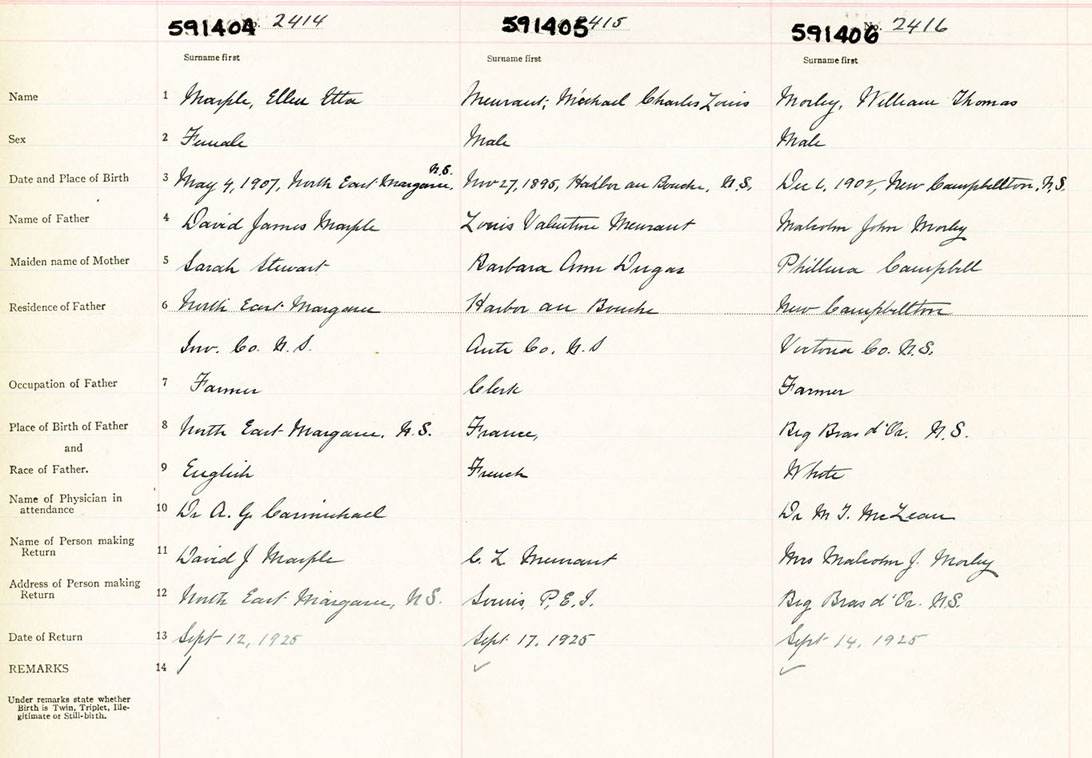 591404 No. 2414 591405 2415 591406 No. 2416
Surname first Surname first Surname first
Name 1 Marple, Ellen Etta Meurant, Michael Charles Louis Morley, William Thomas
Sex 2 Female Male Male
N.S.
Date and Place of Birth 3 May 4, 1907, North East Margaree, Nov 27, 1895, Harbor au Bouche, N.S. Dec 6, 1902, New Campbellton, N.S.
Name of Father 4 David James Marple Louis Valentine Meurant Malcolm John Morley
Maiden name of Mother 5 Sarah Stewart Barbara Ann Dugas Philena Campbell
Residence of Father 6 North East Margaree Harbor au Bouche New Campbellton
Inv. Co. N.S. Ante Co. N.S Victoria Co. N.S.
Occupation of Father 7 Farmer Clerk Farmer
Place of Birth of Father 8 North East Margaree, N.S. France, Big Bras d'Or. N.S.
and
Race of Father. 9 English French White
Name of Physician in
attendance 10 Dr A. G. Carmichael Dr M. T. McLean
Name of Person making
Return 11 David J Marple C. L. Meurant Mrs Malcolm J. Morley
Address of Person making
Return 12 North East Margaree, N.S. Souris, P.E.I. Big Bras d'Or. N.S.
Date of Return 13 Sept 12, 1925 Sept 17, 1925 Sept 14, 1925
REMARKS 14
Under remarks state whether
Birth is Twin, Triplet, Ille-
gitimate or Still-birth.